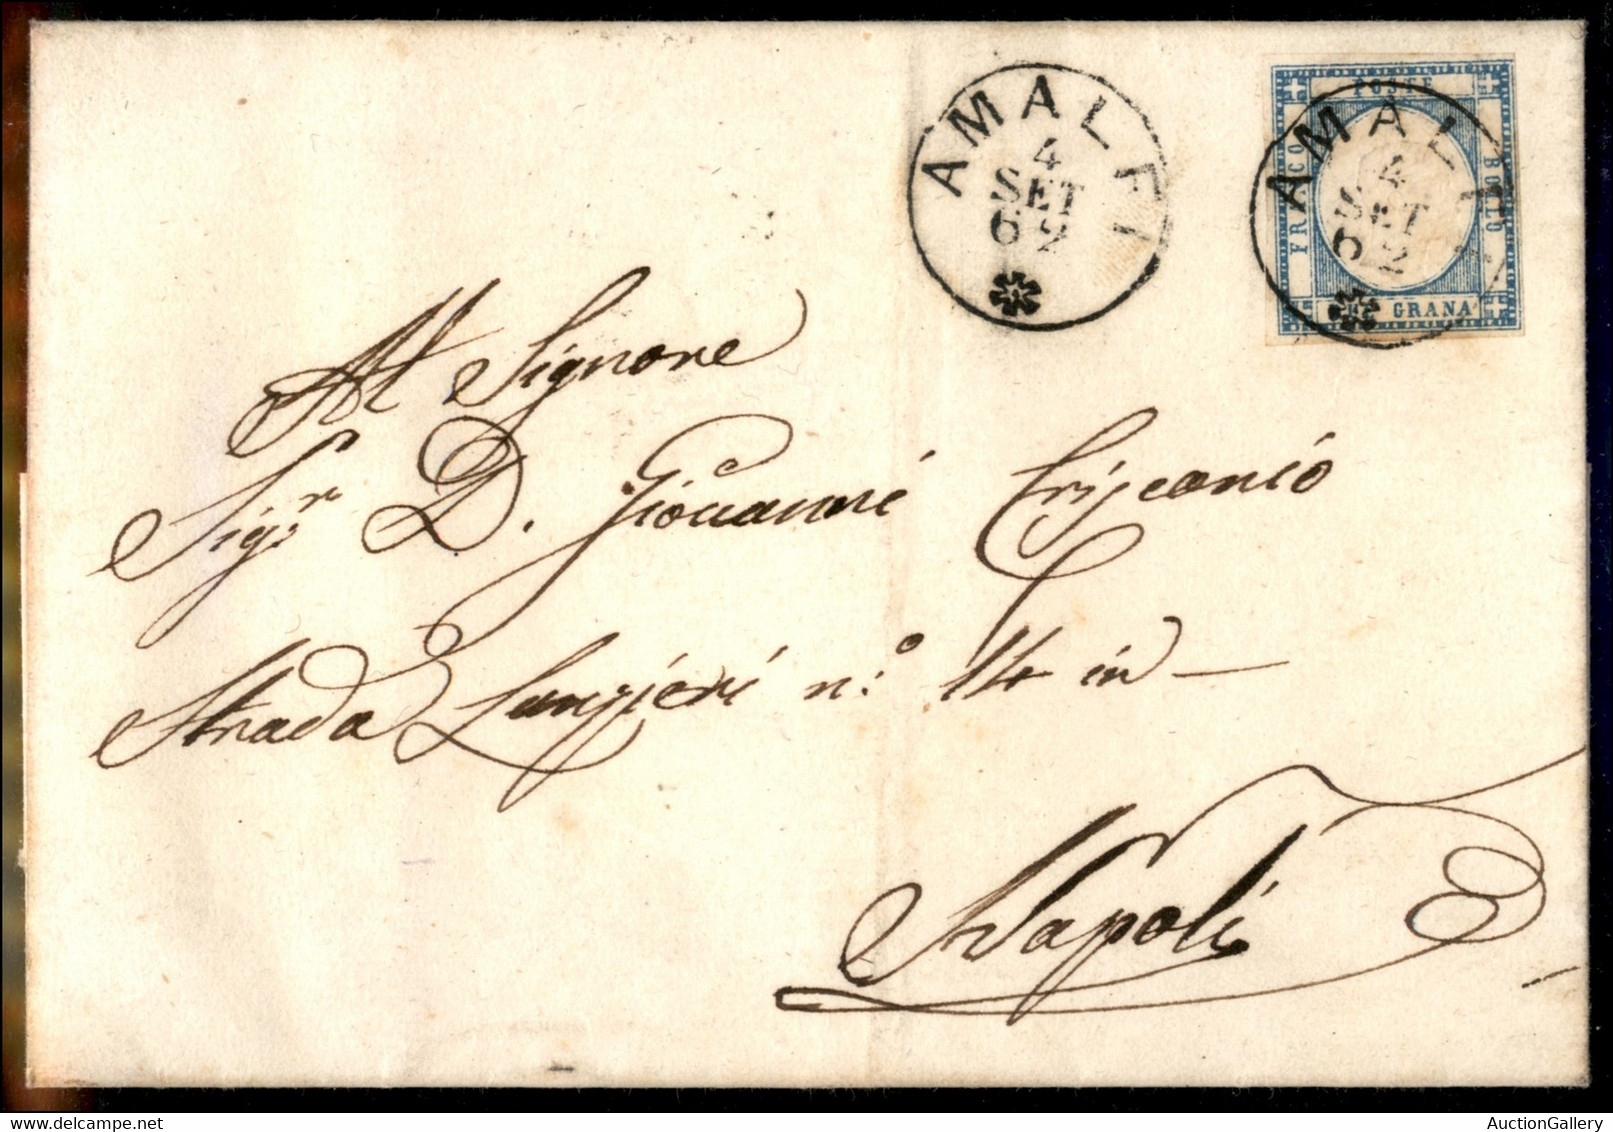 AMALFI
4
SET
62
POSTE
FRANCO
BOLLO
GRANA
AMALFI
4
SET
62
Al Signore
Sigr. D. Giovanni Crisconio
Strada Lanzieri n.° 14 in —
Napoli
AuctionGallery